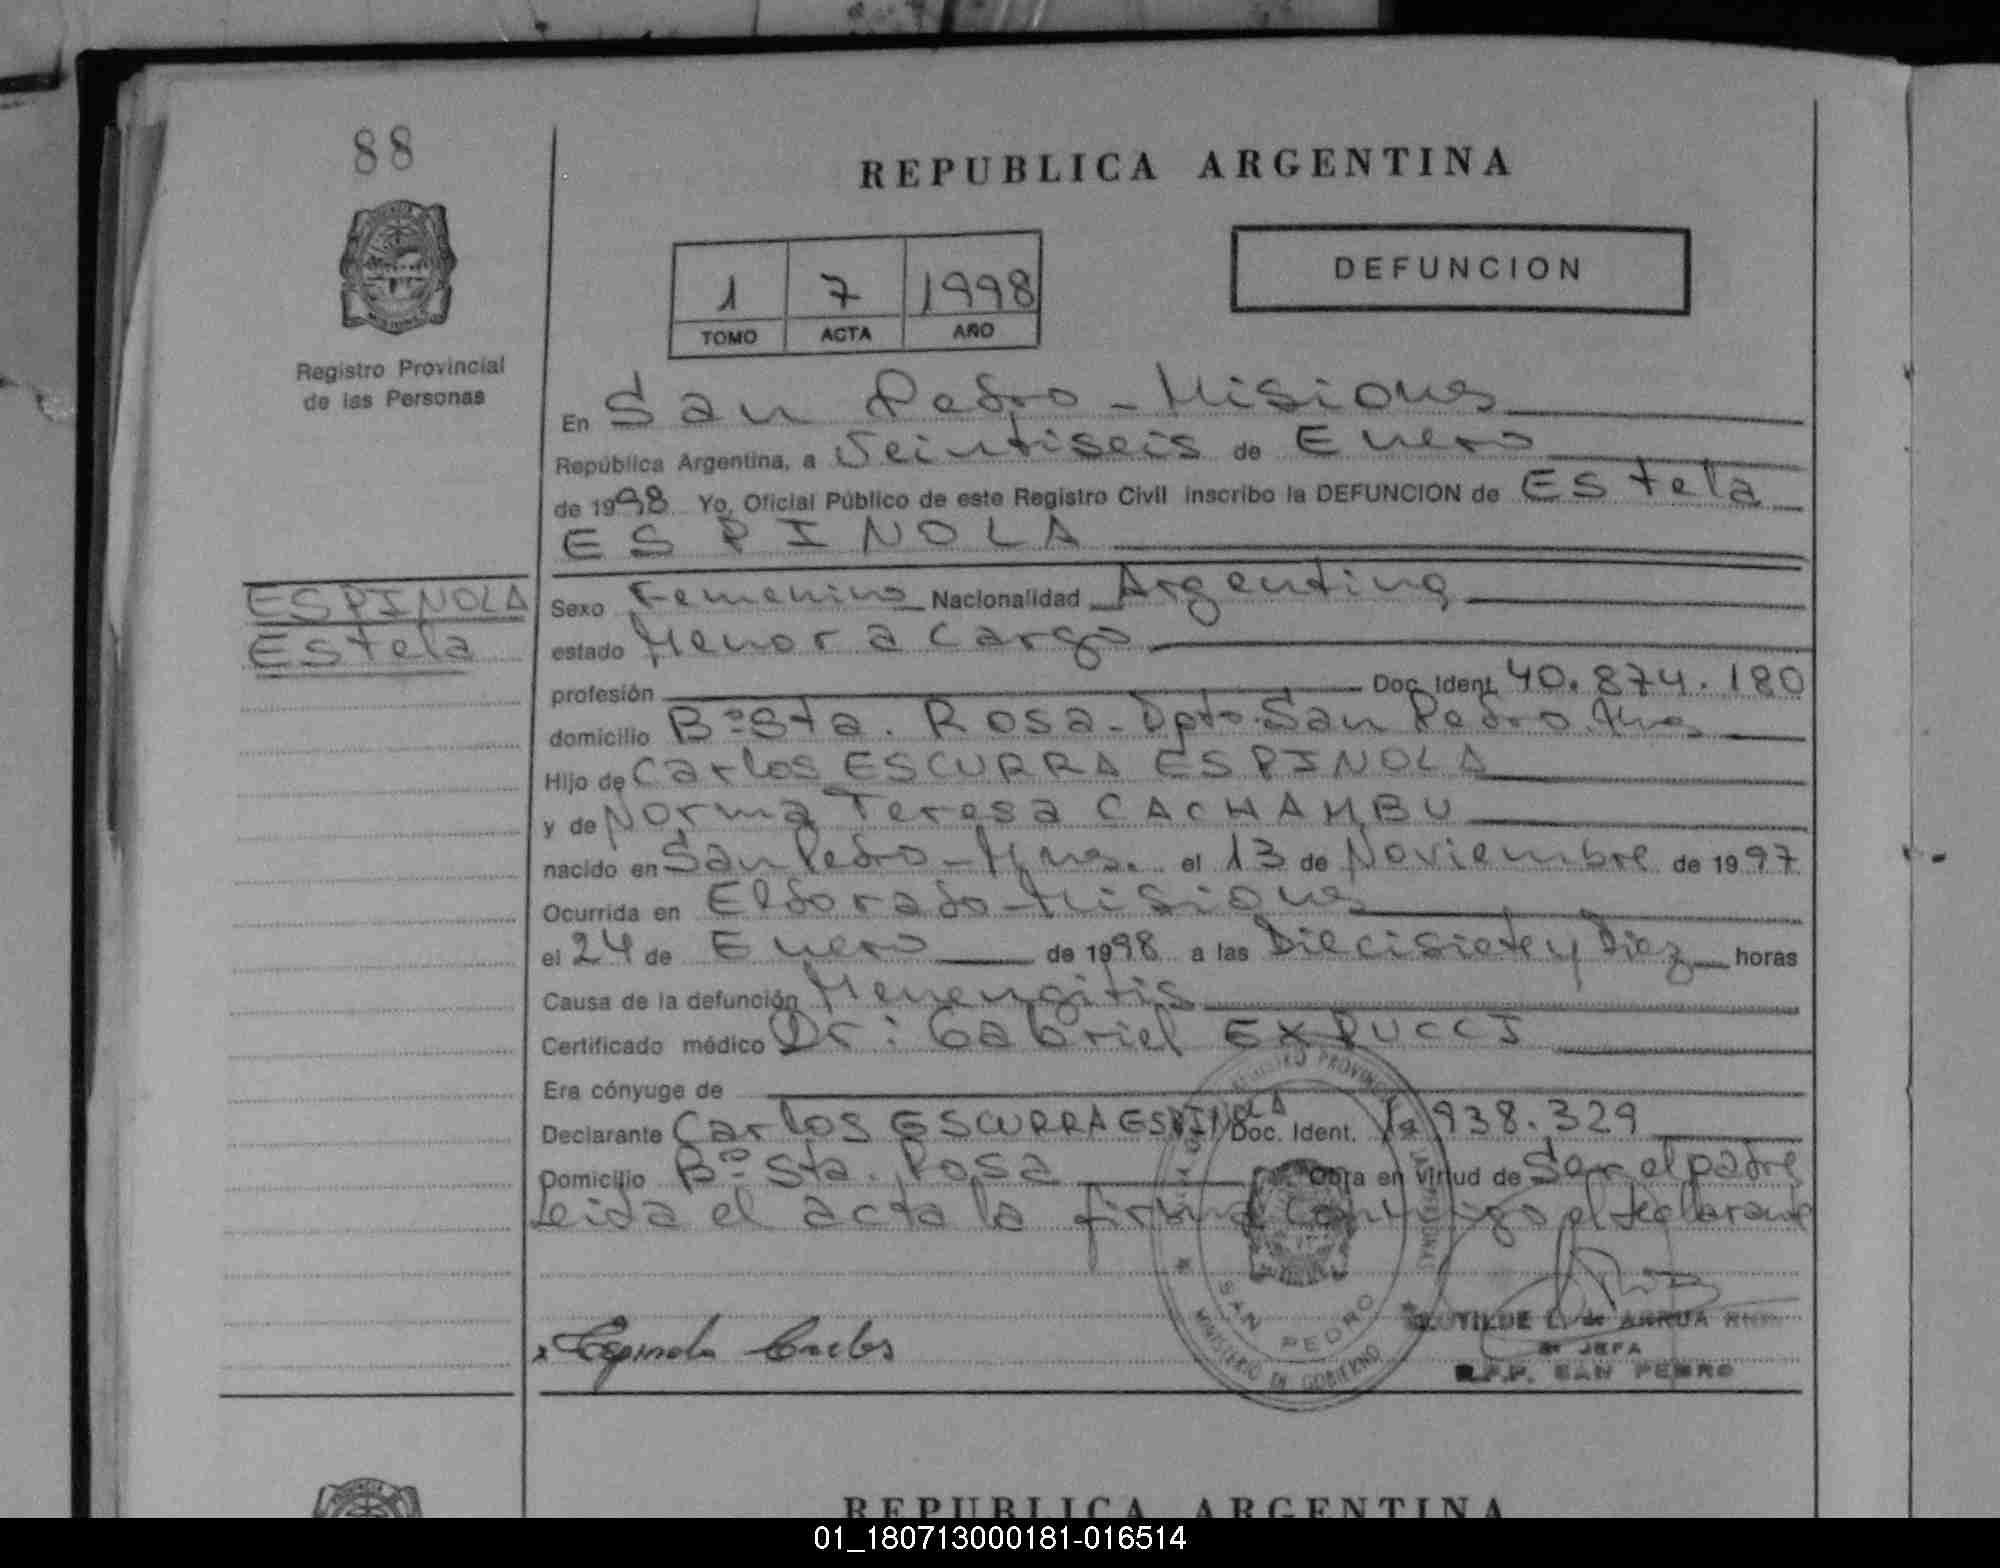 88
REPUBLICA ARGENTINA
1 7 1998
TOMO ACTA AÑO
DEFUNCION
Registro Provincial
de las Personas
En San Pedro - Misiones
República Argentina, a Veintiseis de Enero
de 1998 Yo, Oficial Público de este Registro Civil inscribo la DEFUNCION de Estela
ESPINOLA
ESPINOLA
Estela
Sexo Femenino Nacionalidad Argentina
estado Menor a cargo
profesión Doc. Ident. 40.874.180
domicilio Bº Sta. Rosa - Dpto. San Pedro. Mnes
Hijo de Carlos ESCURRA ESPINOLA
y de Norma Teresa CACHAMBU
nacido en San Pedro - Mnes. el 13 de Noviembre de 1997
Ocurrida en Eldorado - Misiones
el 24 de Enero de 1998 a las Diecisiete y Diez horas
Causa de la defunción Menengitis
Certificado médico Dr: Gabriel EXPUCCI
Era cónyuge de
Declarante Carlos ESCURRA ESPINOLA Doc. Ident. 938.329
Domicilio Bº Sta. Rosa Obra en virtud de Ser el padre
Leida el acta la firma conmigo el declarante
REGISTRO PROVINCIAL DE LAS PERSONAS
SAN PEDRO
MINISTERIO DE GOBIERNO
x Espinola Carlos
CLOTILDE L. de ARRUA
JEFA
R.P.P. SAN PEDRO
REPUBLICA ARGENTINA
01_180713000181-016514